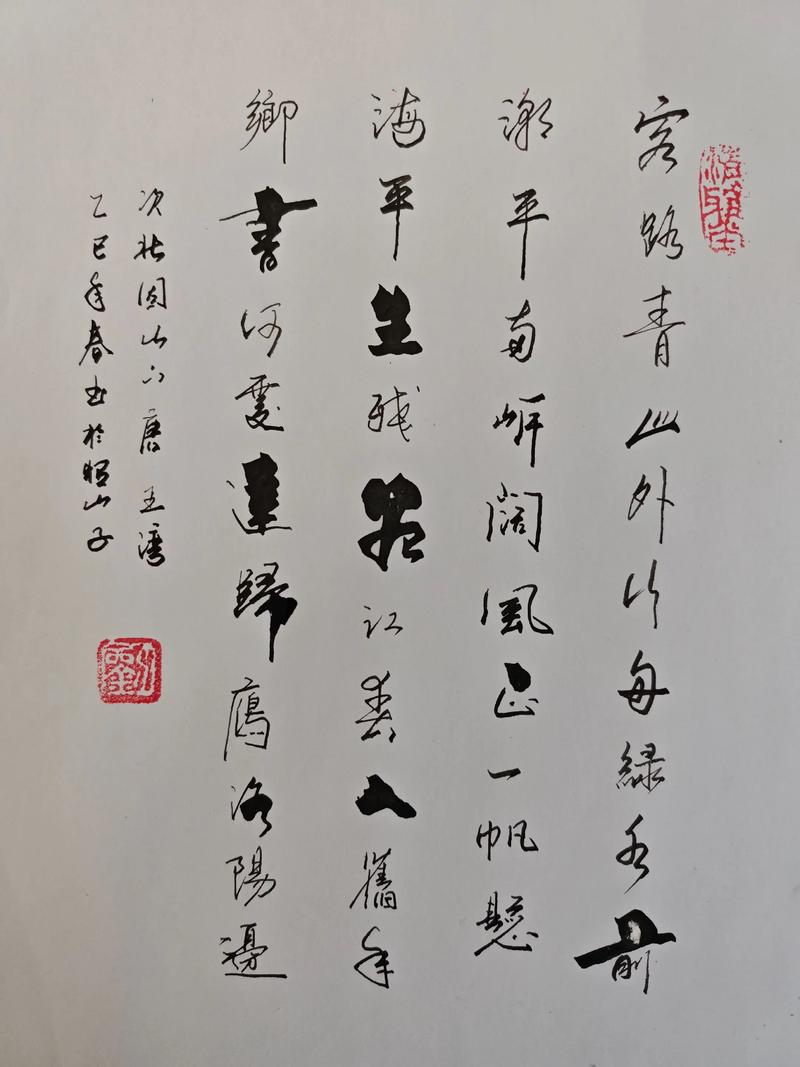 客路青山外行舟綠水前
潮平兩岸闊風正一帆懸
海平生殘夜江春入舊年
鄉書何處達歸鴈洛陽邊
次北固山下唐王灣
乙巳年春書於山子